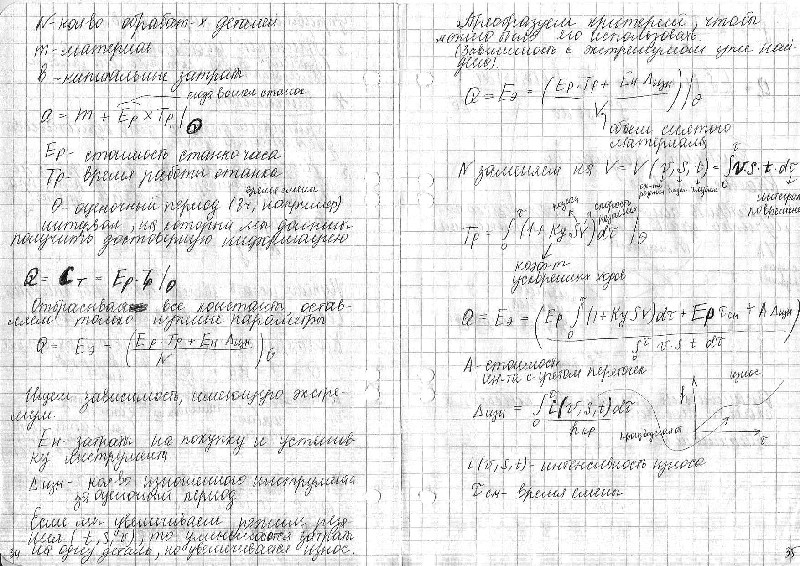 N - кол-во обработ-х деталей
m - материал
B - капитальные затраты
года войны станок
a = m + Eр × Tр |θ
Eр - стоимость станко-часа
Tр - время работы станка
время смены
θ - оценочный период (8ч, например)
интервал, на который мы должны
получить достоверную информацию
Q = Cт = Eр·Tр |θ
Отбрасывая все константы, остав-
ляем только нужные параметры
Q = Eэ = (Eр·Tр + Eн Δизн / N)θ
Ищем зависимость, имеющую экстре-
мум.
Eн - затраты на покупку и установ-
ку инструмента
Δизн - кол-во изношенного инструмента
за оценочный период
Если мы увеличиваем режим реза
ния (t, S, v), то уменьшаются затраты
на одну деталь, но увеличивается износ.
34
Преобразуем критерий, чтобы
можно было его использовать.
(Зависимость с экстремумом уже най-
дена).
Q = Eэ = (Eр·Tр + Eн Δизн / V)|θ
объем снятого
материала
N заменяем на V = V(v, S, t) = ∫₀^τ v·s·t·dτ
подача
скорость резания
интеграл
по времени
Tр = ∫₀^τ (1 + Kу S v) dτ |θ
коэф-т
ускоренных ходов
Q = Eэ = (Eр ∫₀^τ (1 + Kу S v) dτ + Eр τсм + A Δизн / ∫₀^τ v s t dτ)
A - стоимость
ин-та с учетом переточек
Δизн = ∫₀^τ i(v, S, t) dτ / hкр
h
износ
τ
i(v, S, t) - интенсивность износа
τсм - время смены
35